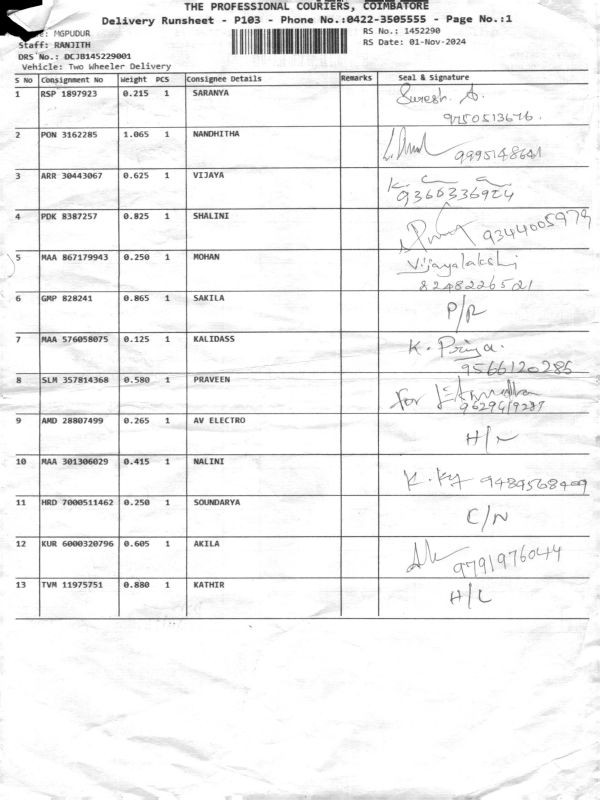 THE PROFESSIONAL COURIERS, COIMBATORE
Delivery Runsheet - P103 - Phone No.:0422-3505555 - Page No.:1
MGPUDUR
RS No.: 1452290
Staff: RANJITH
RS Date: 01-Nov-2024
DRS No.: DCJB145229001
Vehicle: Two Wheeler Delivery
S No Consignment No Weight PCS Consignee Details Remarks Seal & Signature
1 RSP 1897923 0.215 1 SARANYA Suresh. A.
9750513676.
2 PON 3162285 1.065 1 NANDHITHA
9995148641
3 ARR 30443067 0.625 1 VIJAYA
9366336924
4 PDK 8387257 0.825 1 SHALINI
9344005979
5 MAA 867179943 0.250 1 MOHAN Vijayalakshi
8248226521
6 GMP 828241 0.865 1 SAKILA P/R
7 MAA 576058075 0.125 1 KALIDASS K. Priya.
9566120286
8 SLM 357814368 0.580 1 PRAVEEN For
9629419287
9 AMD 28807499 0.265 1 AV ELECTRO H/N
10 MAA 301306029 0.415 1 NALINI
9489568409
11 HRD 7000511462 0.250 1 SOUNDARYA C/N
12 KUR 6000320796 0.605 1 AKILA
9791976044
13 TVM 11975751 0.880 1 KATHIR H/L